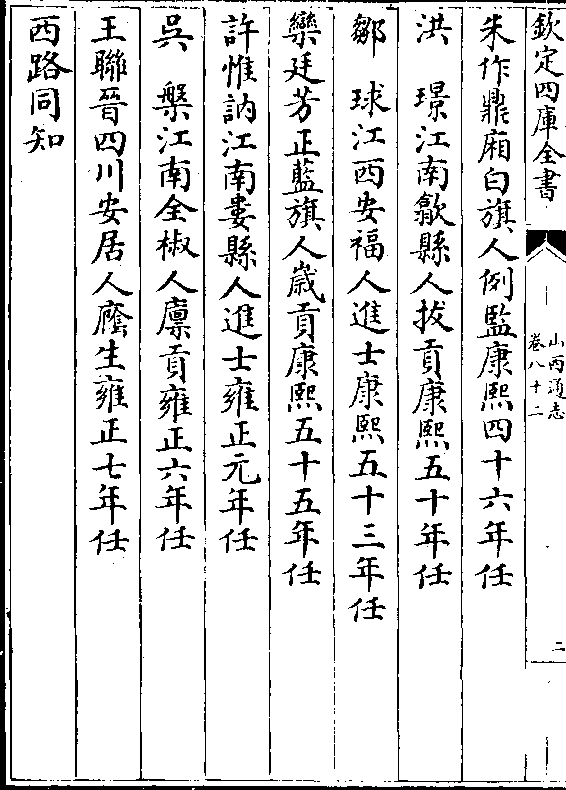 欽定四庫全書
山西通志
卷八十二
二
朱作鼎廂白旗人例監康熙四十六年任
洪　璟江南歙縣人拔貢康熙五十年任
鄒　球江西安福人進士康熙五十三年任
欒廷芳正藍旗人歲貢康熙五十五年任
許惟訥江南婁縣人進士雍正元年任
吳　槃江南全椒人廪貢雍正六年任
王聯晉四川安居人廕生雍正七年任
西路同知